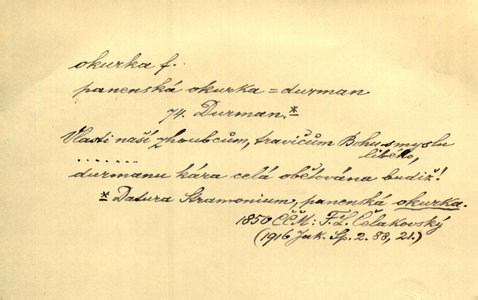 okurka f.
panenská okurka = durman
74. Durman.*
Vlasti naší zhoubcům, travičům Bohu smyslu
libého,
.......
durmanu kára celá obětována budiž!
* Datura Stramonium, panenská okurka.
1850 ČČM: F. L. Čelakovský
(1916 Jak. Sp. 2. 88, 21.)